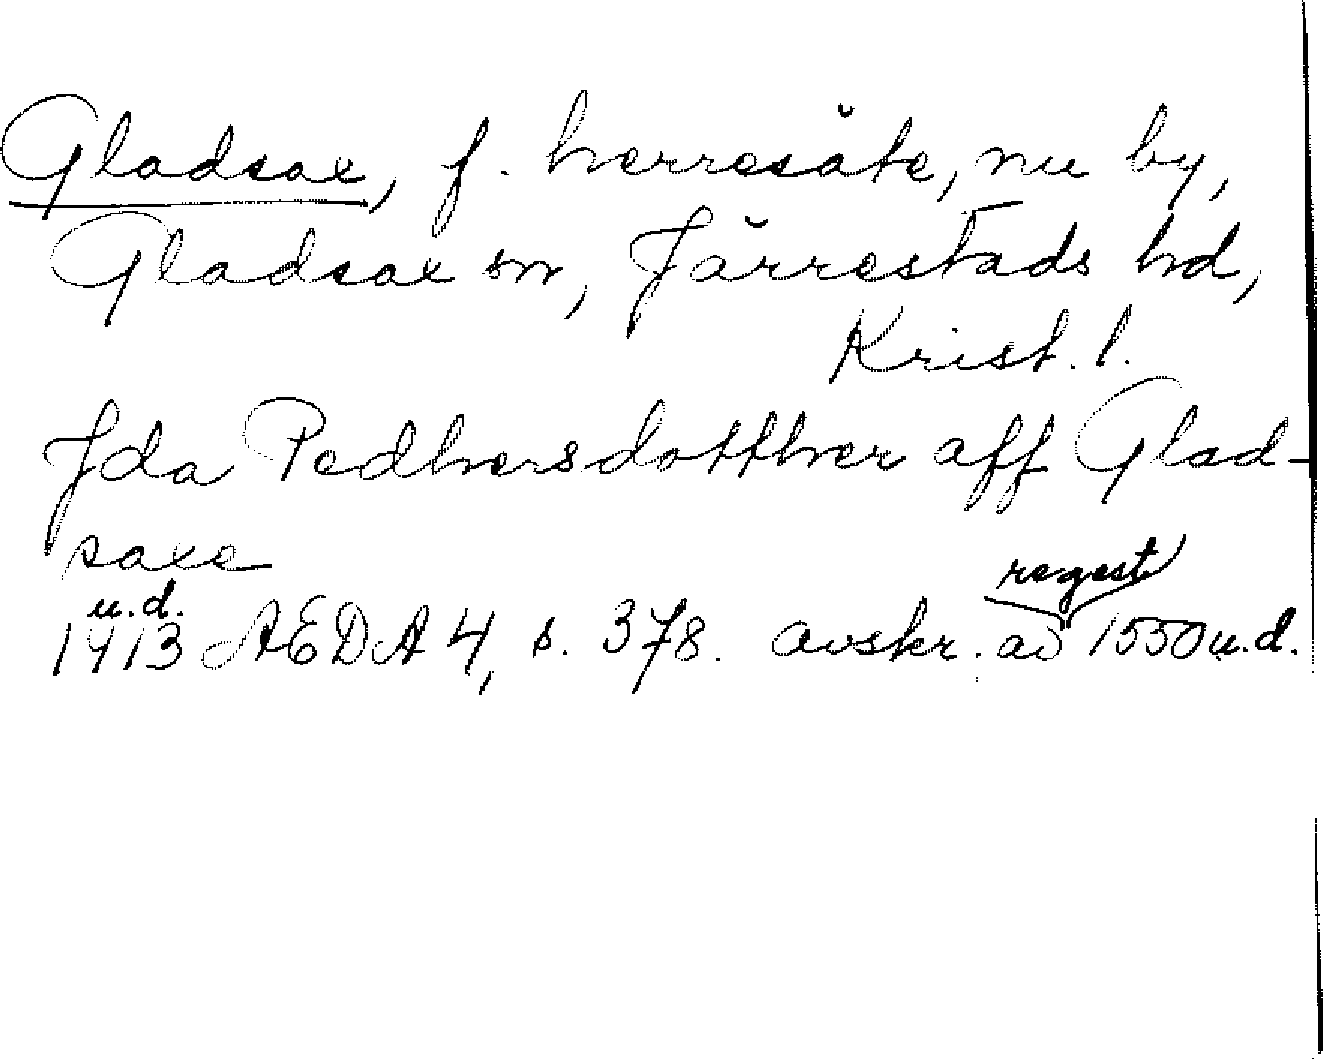 Gladsax, f. herresäte, nu by,
Gladsax sn, Järrestads hd,
Krist. l.
Jda Pedhersdotther aff Glad-
saxe
u.d. regest
1413 AEDA 4, s. 378. avskr. av 1550 u.d.